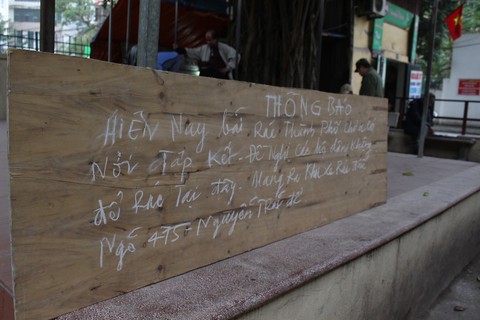 THÔNG BÁO
HIỆN Nay bãi Rác Thành Phố Chưa Có
Nơi Tập Kết. ĐỀ Nghị các hộ dân không
đổ Rác Tại đây. Mang Ra Nhà Ga Rác Thải
Ngõ 475 - Nguyễn Trãi để